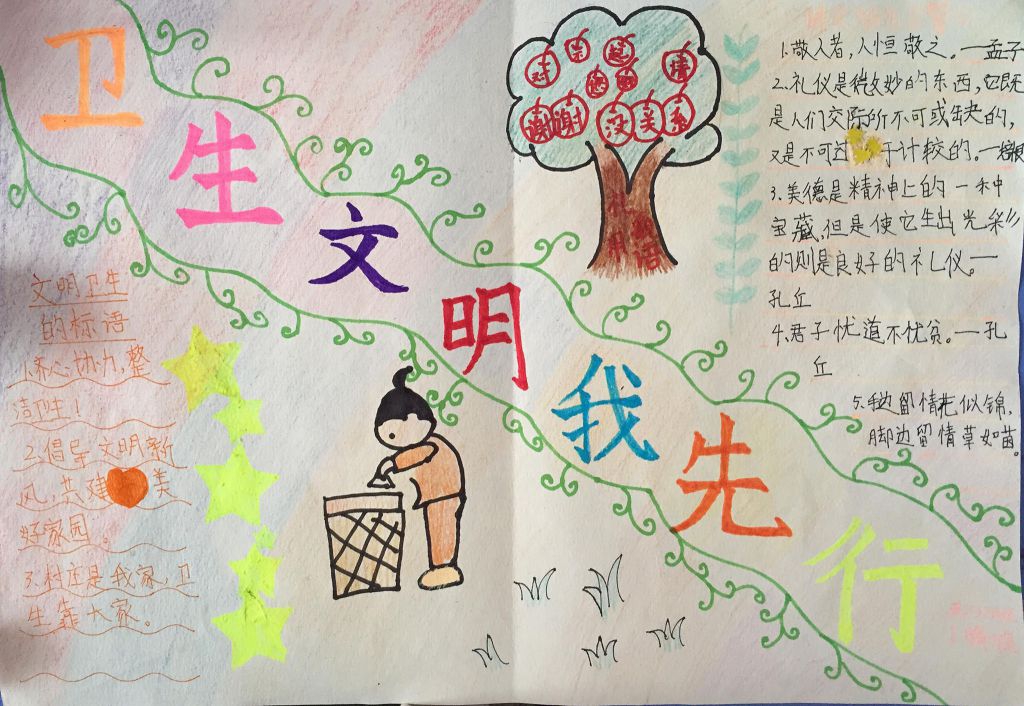 卫生文明我先行
文明卫生
的标语
1.齐心协力,整
洁卫生!
2.倡导文明新
风,共建美
好家园。
3.村庄是我家,卫
生靠大家。
对 不 起 请
您 好
谢谢 没关系
礼貌
用语
1.敬人者,人恒敬之。—孟子
2.礼仪是微妙的东西,它既
是人们交际所不可或缺的,
又是不可过于计较的。—培根
3.美德是精神上的一种
宝藏,但是使它生出光彩
的则是良好的礼仪。—
孔丘
4.君子忧道不忧贫。—孔
丘
5.手边留情花似锦,
脚边留情草如茵。